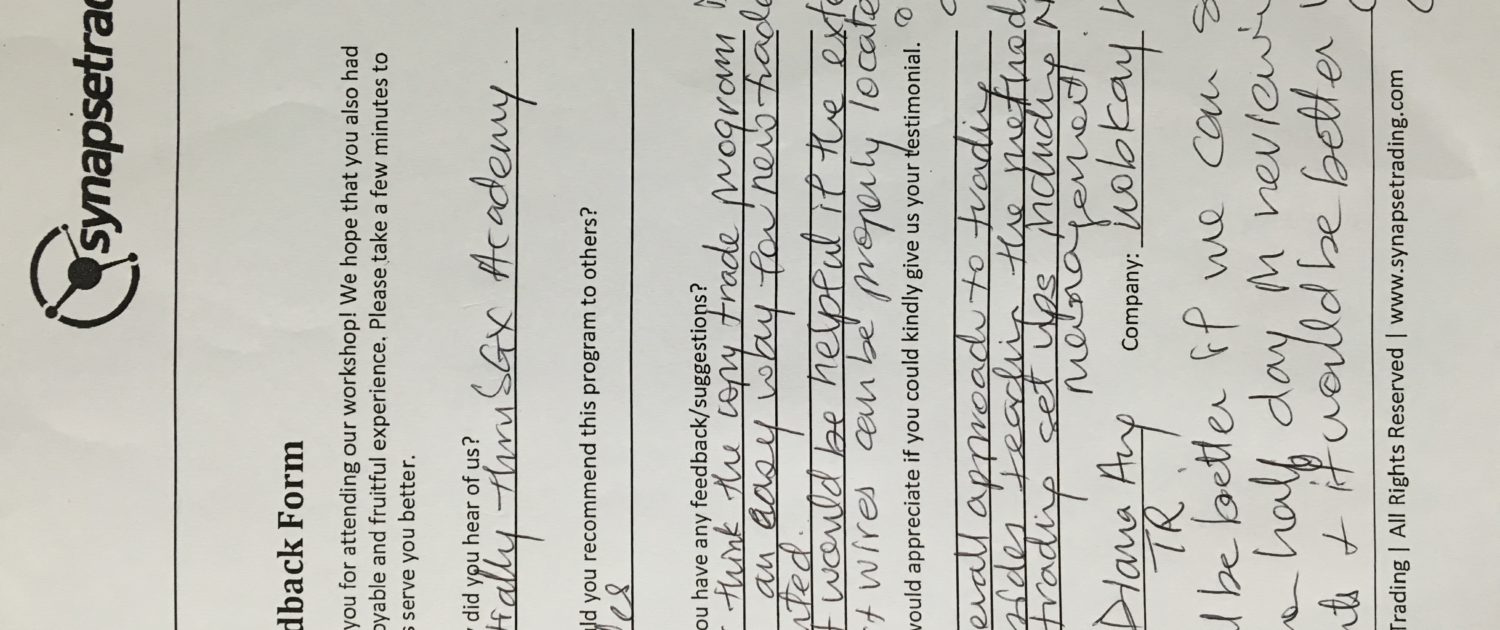 synapsetrad
dback Form
you for attending our workshop! We hope that you also had
oyable and fruitful experience. Please take a few minutes to
s serve you better.
did you hear of us?
thru SGX Academy.
ld you recommend this program to others?
ou have any feedback/suggestions?
think the copy trade program
an easy way for new trade
ted.
would be helpful if the exte
wires can be properly locate
would appreciate if you could kindly give us your testimonial.
erall approach to trading
teaching the method
trading set ups including
management.
Diana Ang Company:
TR
be better if we can
half day reviewin
it would be better
Trading | All Rights Reserved | www.synapsetrading.com